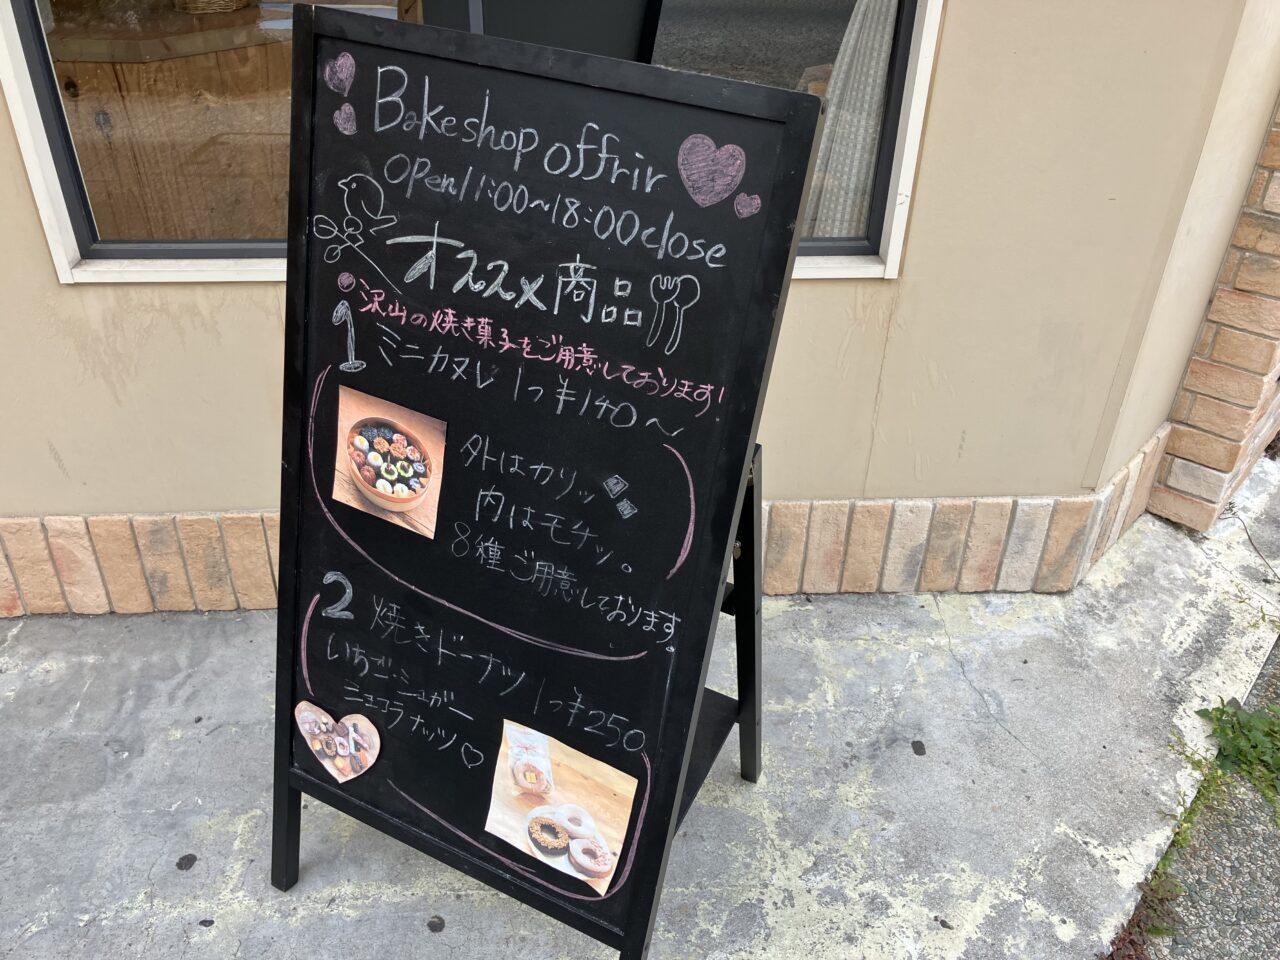 Bakeshop offrir
open 11:00~18:00 close
オススメ商品
沢山の焼き菓子をご用意しております!
1 ミニカヌレ 1つ¥140~
外はカリッ
内はモチッ。
8種ご用意しております。
2 焼きドーナツ 1つ¥250
いちご・シュガー
ショコラナッツ♡